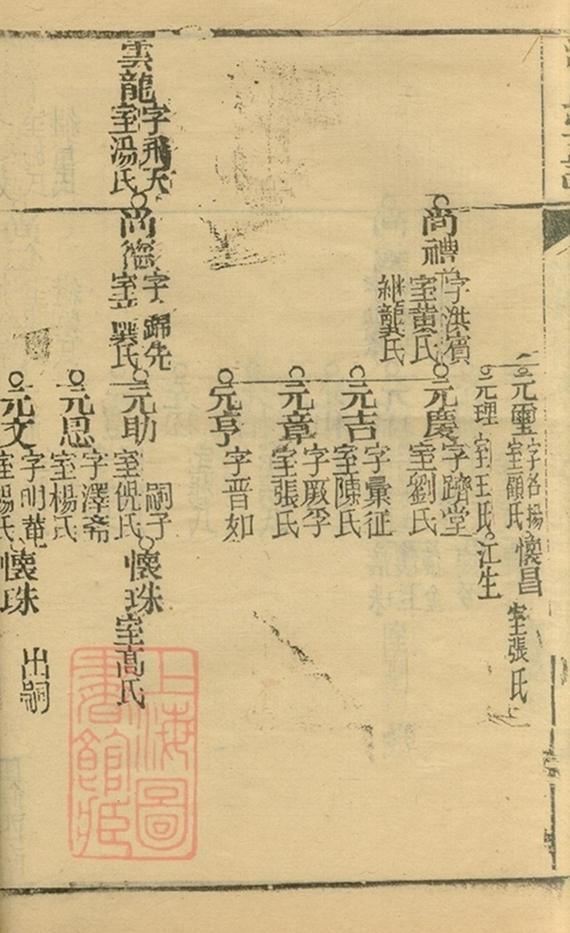 元璽
字名揚
室顧氏
懷昌
室張氏
元理
室王氏
江生
尚禮
字洪賓
室黃氏
繼龔氏
元慶
字躋堂
室劉氏
元吉
字彙征
室陳氏
元章
字厥孚
室張氏
元亨
字晋如
雲龍
字飛天
室湯氏
尚德
字歸先
元助
室倪氏
嗣子
懷珠
室高氏
元思
字澤
室楊氏
元文
字明
室楊氏
懷珠
出嗣
上海圖
書館藏